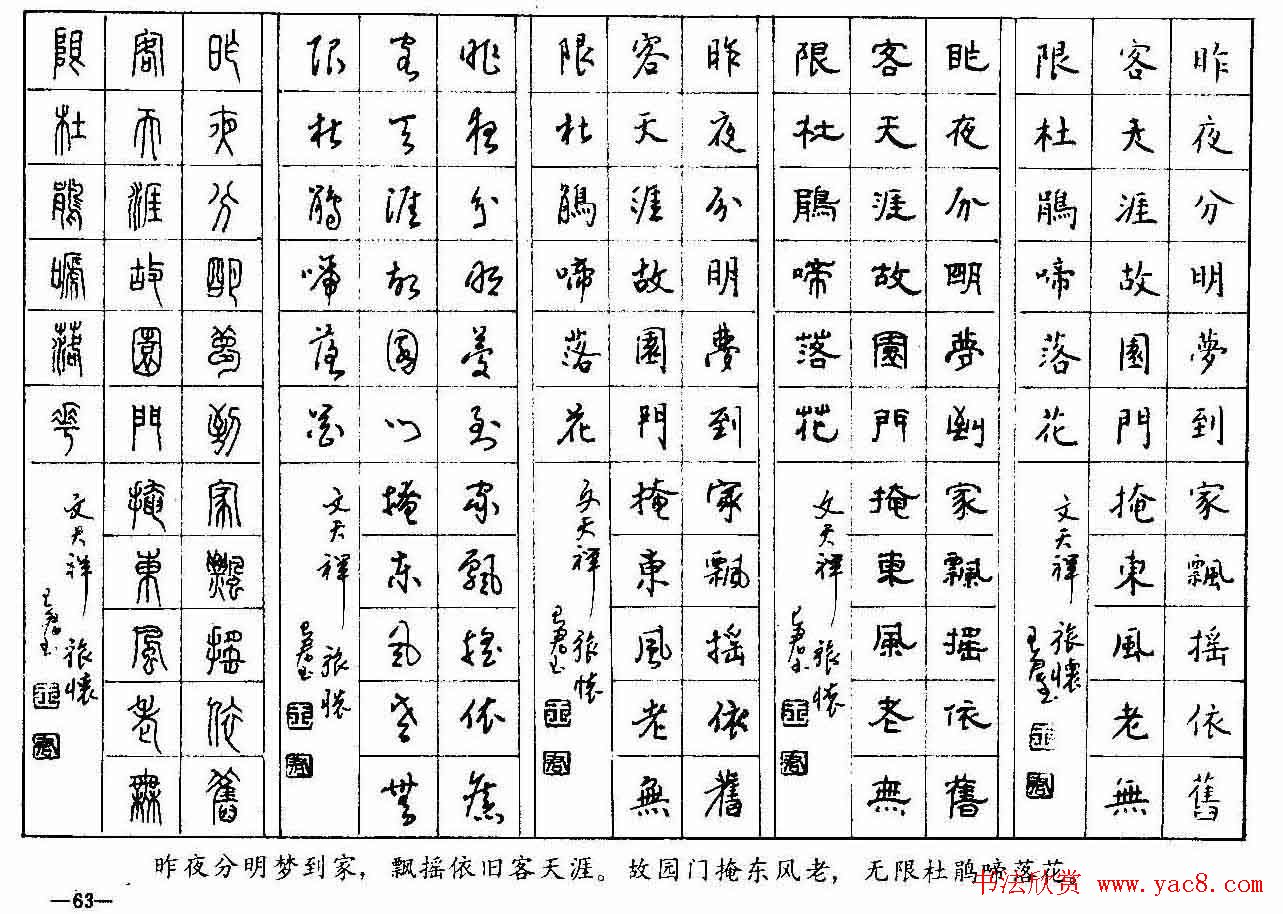 昨夜分明夢到家飄摇依舊
客天涯故園門掩東風老無
限杜鵑啼落花
文天祥 張懷
王君书
昨夜分明夢到家飄摇依舊
客天涯故園門掩東風老無
限杜鵑啼落花
文天祥 張懷
昨夜分明夢到家飄摇依舊
客天涯故園門掩東風老無
限杜鵑啼落花
文天祥 張懷
昨夜分明夢到家飄摇依舊
客天涯故園門掩東風老無
限杜鵑啼落花
文天祥 張懷
昨夜分明夢到家飄摇依舊
客天涯故園門掩東風老無
限杜鵑啼落花
文天祥 張懷
昨夜分明梦到家，飘摇依旧客天涯。故园门掩东风老，无限杜鹃啼落花。
—63—
书法欣赏 www.yac8.com